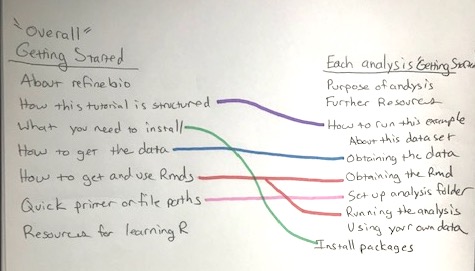 "Overall"
Getting Started
About refinebio
How this tutorial is structured
What you need to install
How to get the data
How to get and use Rmds
Quick primer or file paths
Resources for learning R
Each analysis Getting Started
Purpose of analysis
Further Resources
How to run this example
About this dataset
Obtaining the data
Obtaining the Rmd
Set up analysis folder
Running the analysis
Using your own data
Install packages